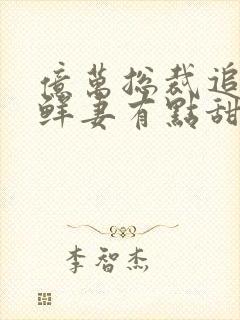 億萬總裁追
鮮妻有點甜
李智杰